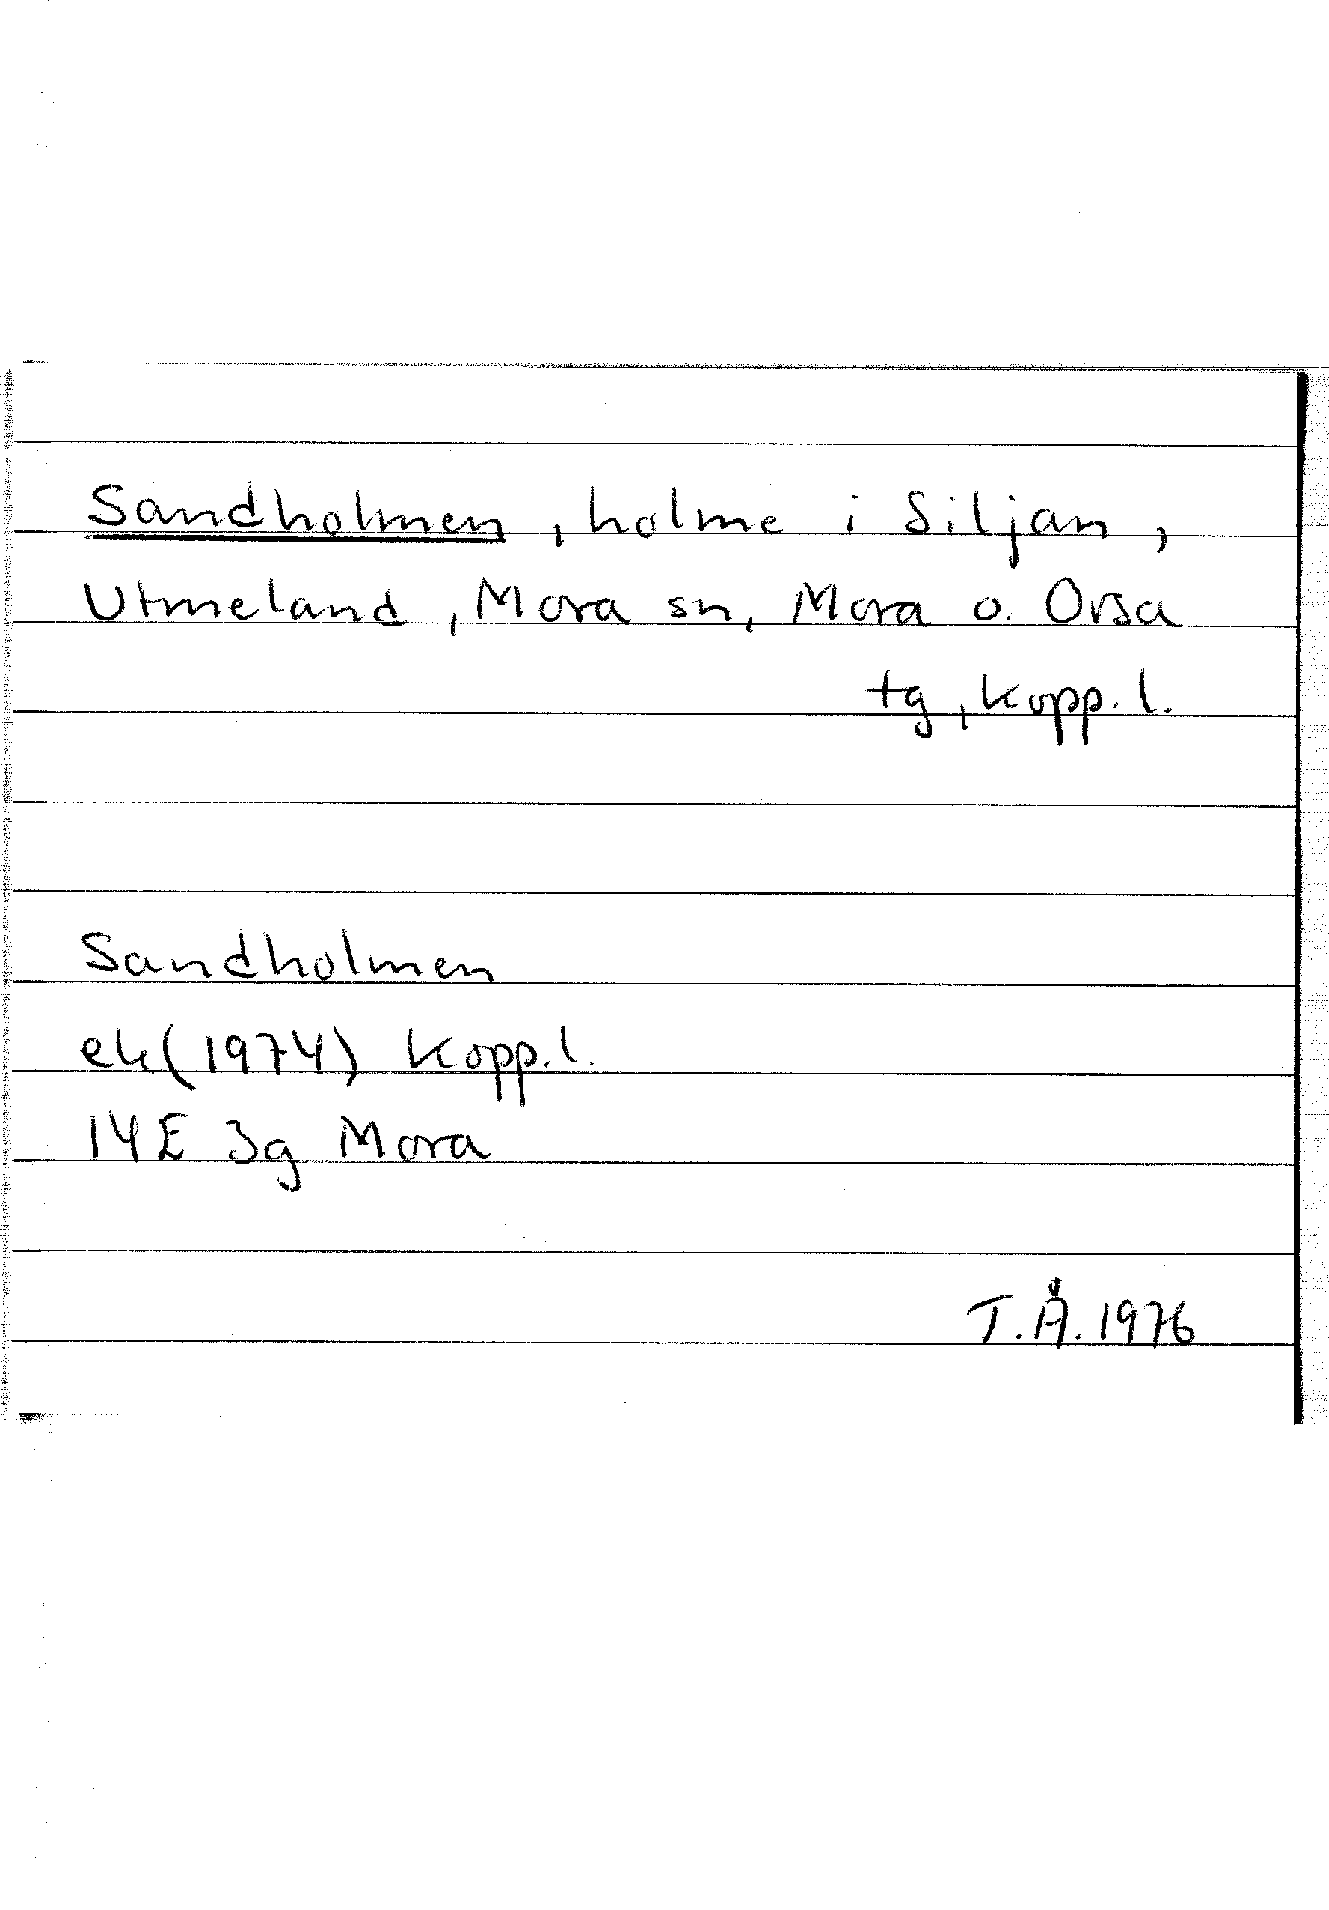 Sandholmen, holme i Siljan,
Utmeland, Mora sn, Mora o. Orsa
tg, Kopp. l.
Sandholmen
ek (1974) Kopp. l.
14E 3g Mora
T.Å. 1976